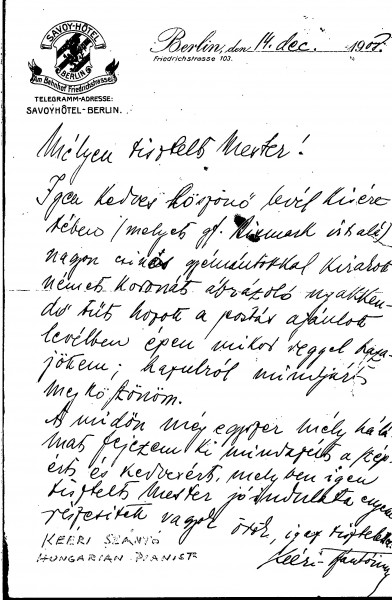 SAVOY-HÔTEL
BERLIN
Am Bahnhof Friedrichstrasse
TELEGRAMM-ADRESSE:
SAVOYHÔTEL-BERLIN.
Berlin, den 14. dec. 1907.
Friedrichstrasse 103.
Mélyen tisztelt Mester!
Igen kedves köszönő levél kisére
tében (melyet gf. Bismark irt alá)
nagyon csinos gyémántokkal kirakott
német koronát ábrázoló nyakken-
dő tűt hozott a postás ajánlott
levélben épen mikor reggel haza
jöttem; hazulról mindjárt
megköszönöm.
A midőn még egyszer mély hálá
mat fejezem ki mindazért a szép
ért és kedvesért, melyben igen
tisztelt Mester jóindulata engem
részesitett vagyok örök, igaz tisztelettel
Kééri-Szántó
KEÉRI SZÁNTÓ
HUNGARIAN PIANIST